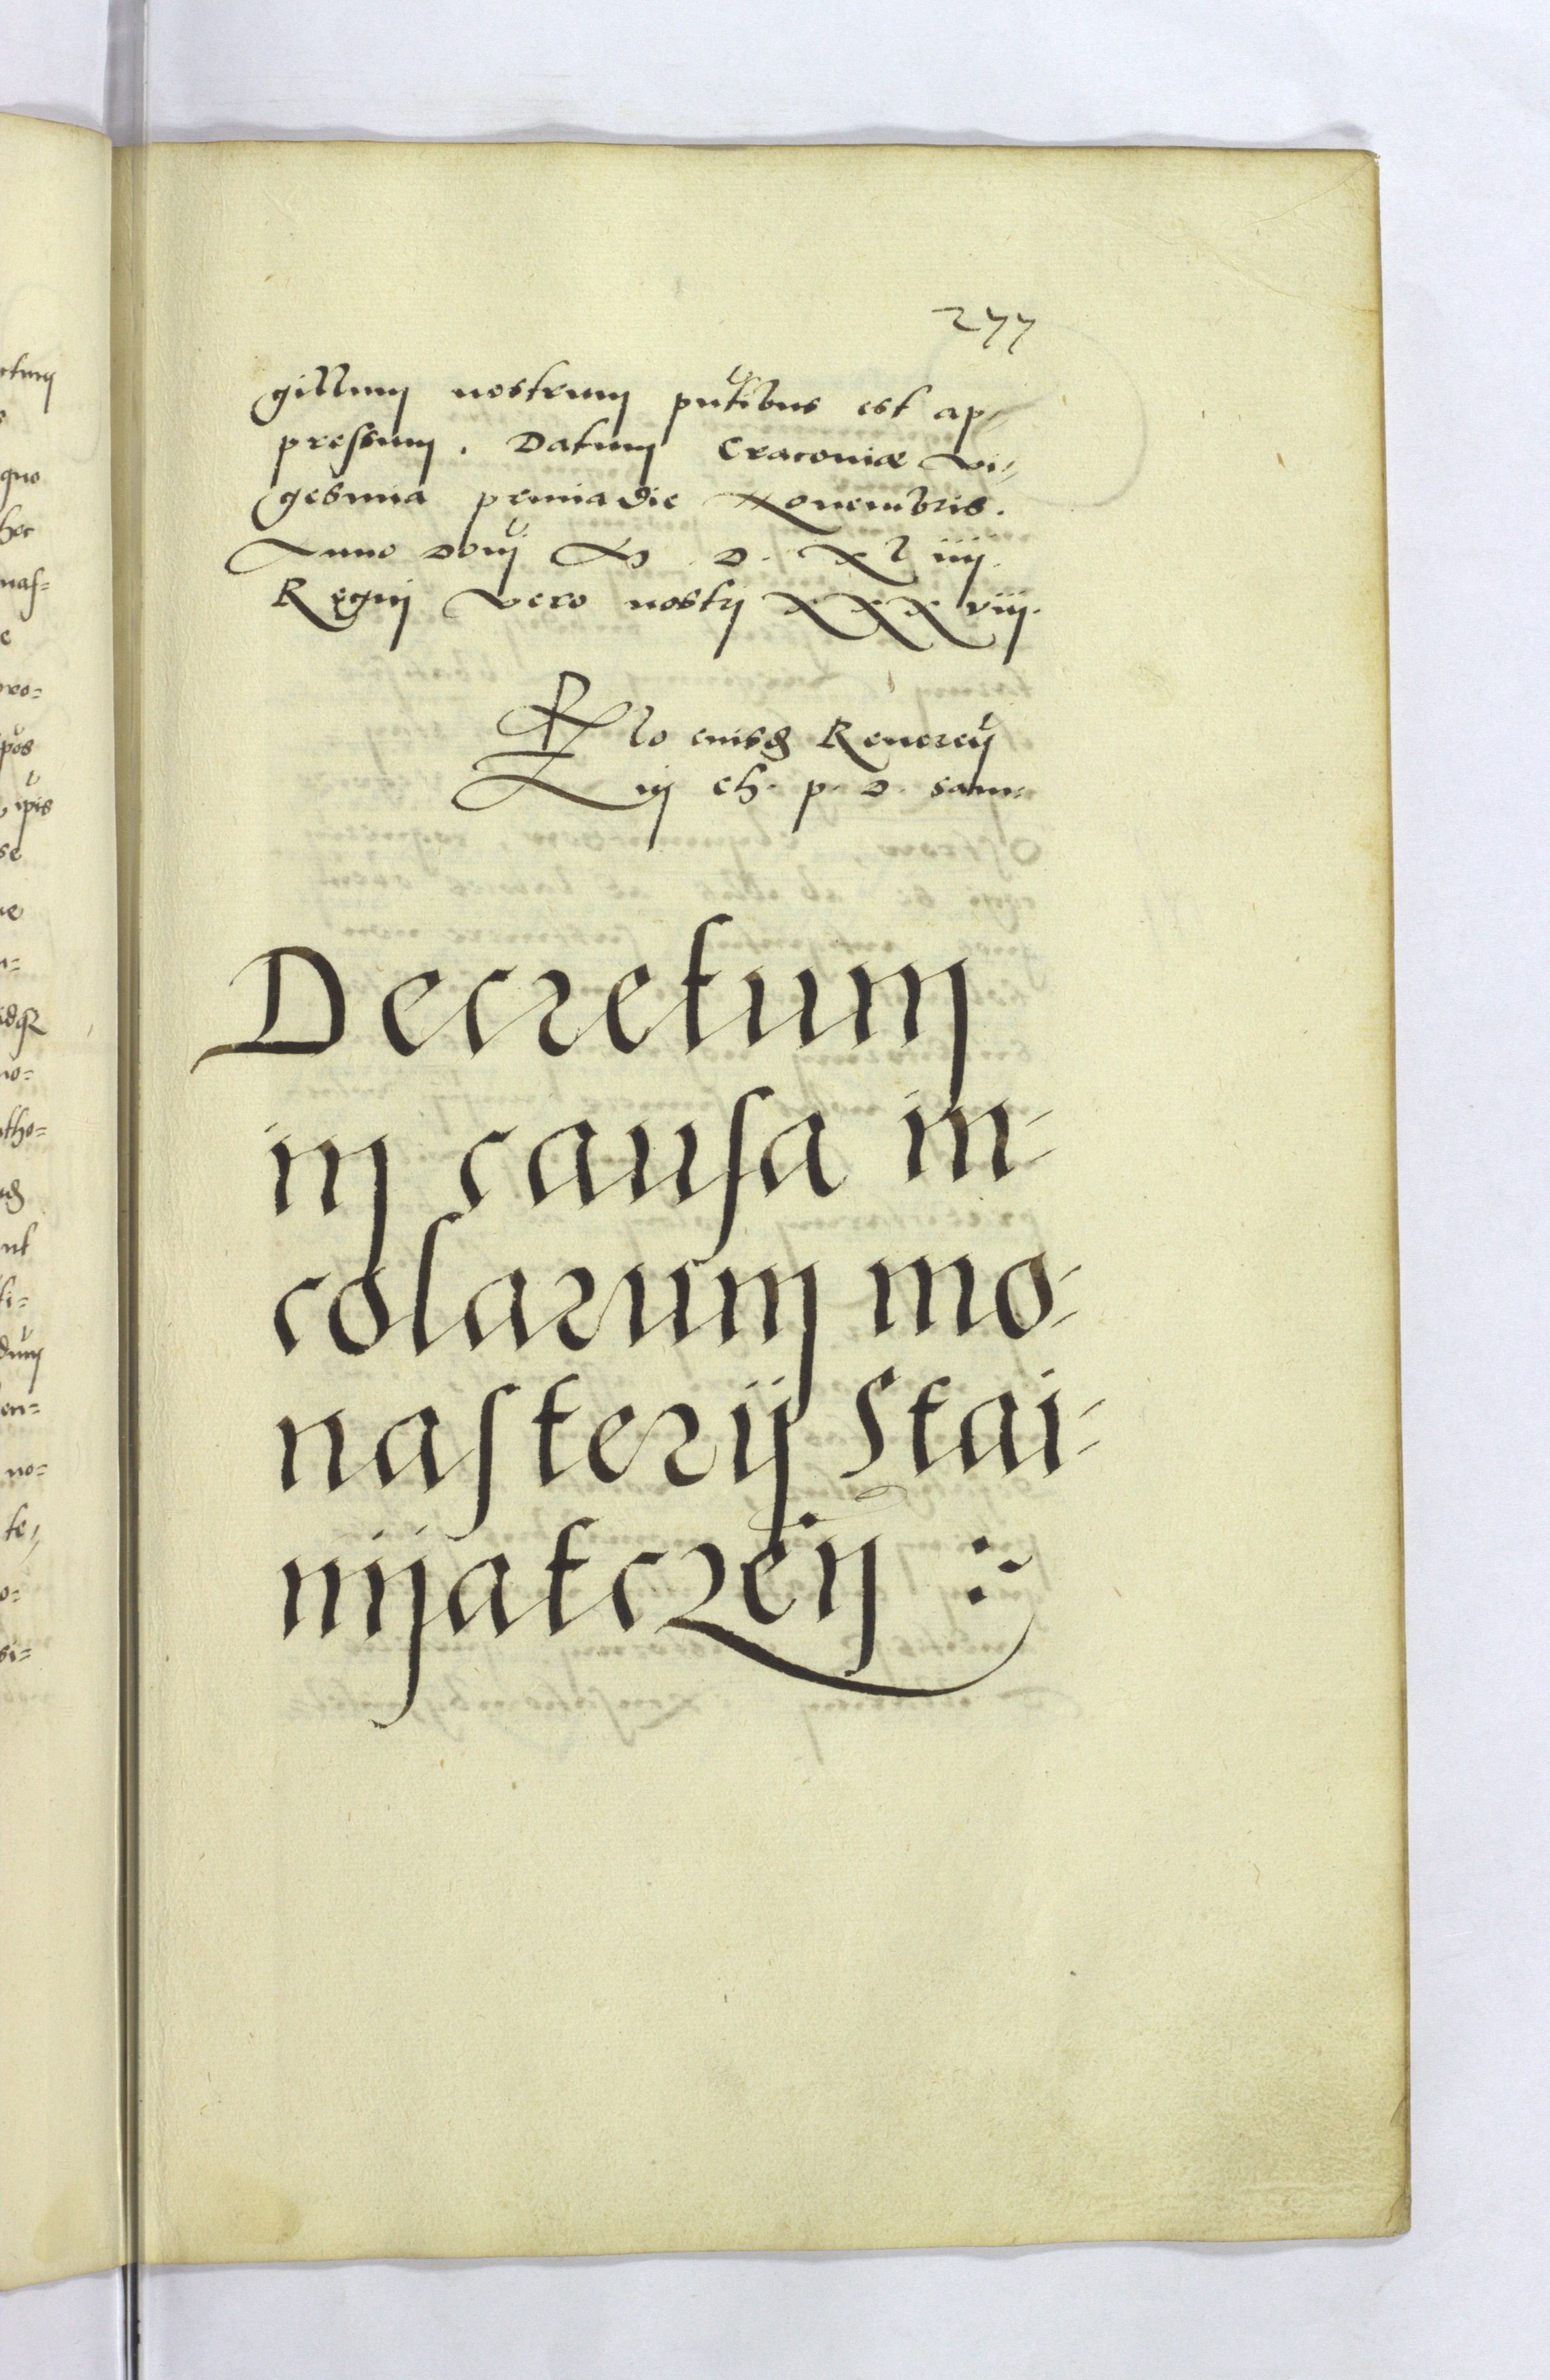 277
gillum nostrum pntibus est ap-
pressum. Datum Cracoviæ vi-
gesima prima die Novembris.
Anno Domi M. D. XLiiii.
Regni vero nostri XXXviii.
Rlo eiusdem Reueren
in Ch. p. D. Sam-
Decretum
in causa in-
colarum mo-
nasterij Stai-
nijatczeij